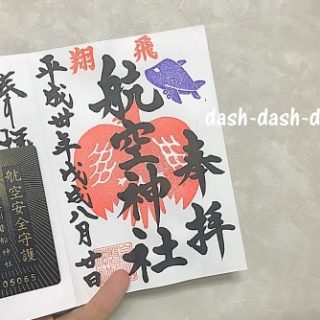 飛翔
奉拝
航空神社
平成卅年戊戌八月廿日
奉拝
航空安全守護
05065
dash-dash-d